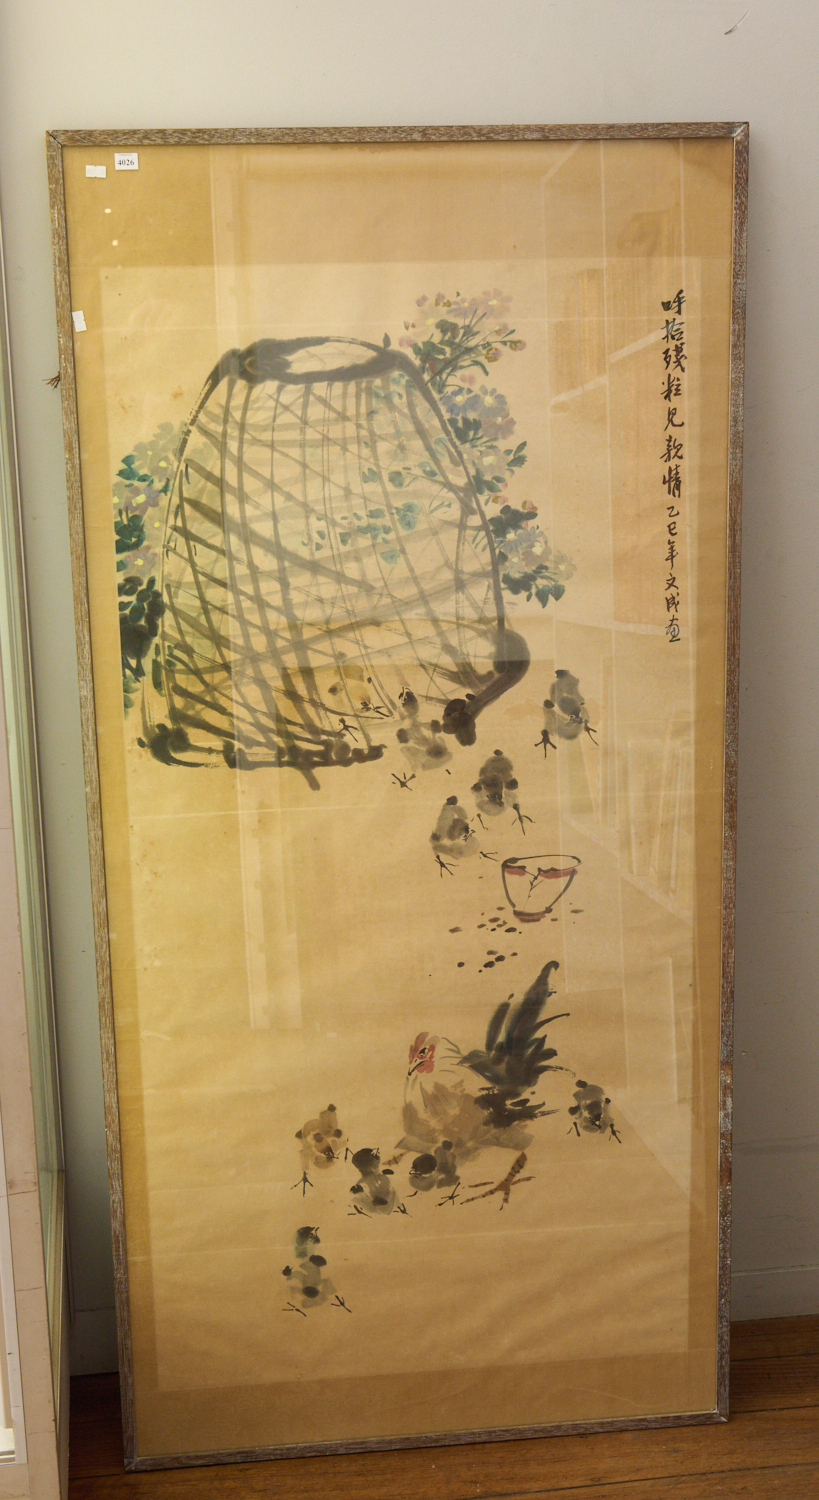 4026
呼拾殘粒見親情 乙巳年文成画